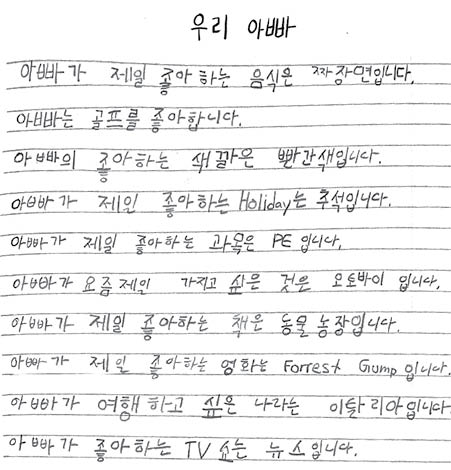 우리 아빠
아빠가 제일 좋아하는 음식은 짜장면입니다.
아빠는 골프를 좋아합니다.
아빠의 좋아하는 색깔은 빨간색입니다.
아빠가 제일 좋아하는 Holiday는 추석입니다.
아빠가 제일 좋아하는 과목은 PE 입니다.
아빠가 요즘제일 가지고 싶은 것은 오토바이 입니다.
아빠가 제일 좋아하는 책은 동물 농장입니다.
아빠가 제일 좋아하는 영화는 Forrest Gump 입니다.
아빠가 여행하고 싶은 나라는 이탈리아입니다
아빠가 좋아하는 TV 쇼는 뉴스입니다.